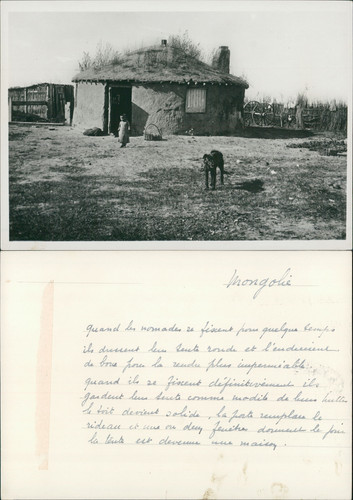 Mongolie
Quand les nomades se fixent pour quelque temps
ils dressent leur tente ronde et l'enduisent
de boue pour la rendre plus imperméable.
quand ils se fixent définitivement ils
gardent leur tente comme modèle de leurs huttes
le toit devient solide, la porte remplace le
rideau et une ou deux fenêtres donnent le jour
la tente est devenue une maison.